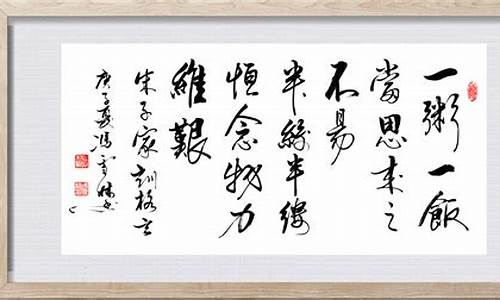 一粥一飯
當思來之
不易
半絲半縷
恒念物力
維艱
朱子家訓格言
庚子夏馮雪